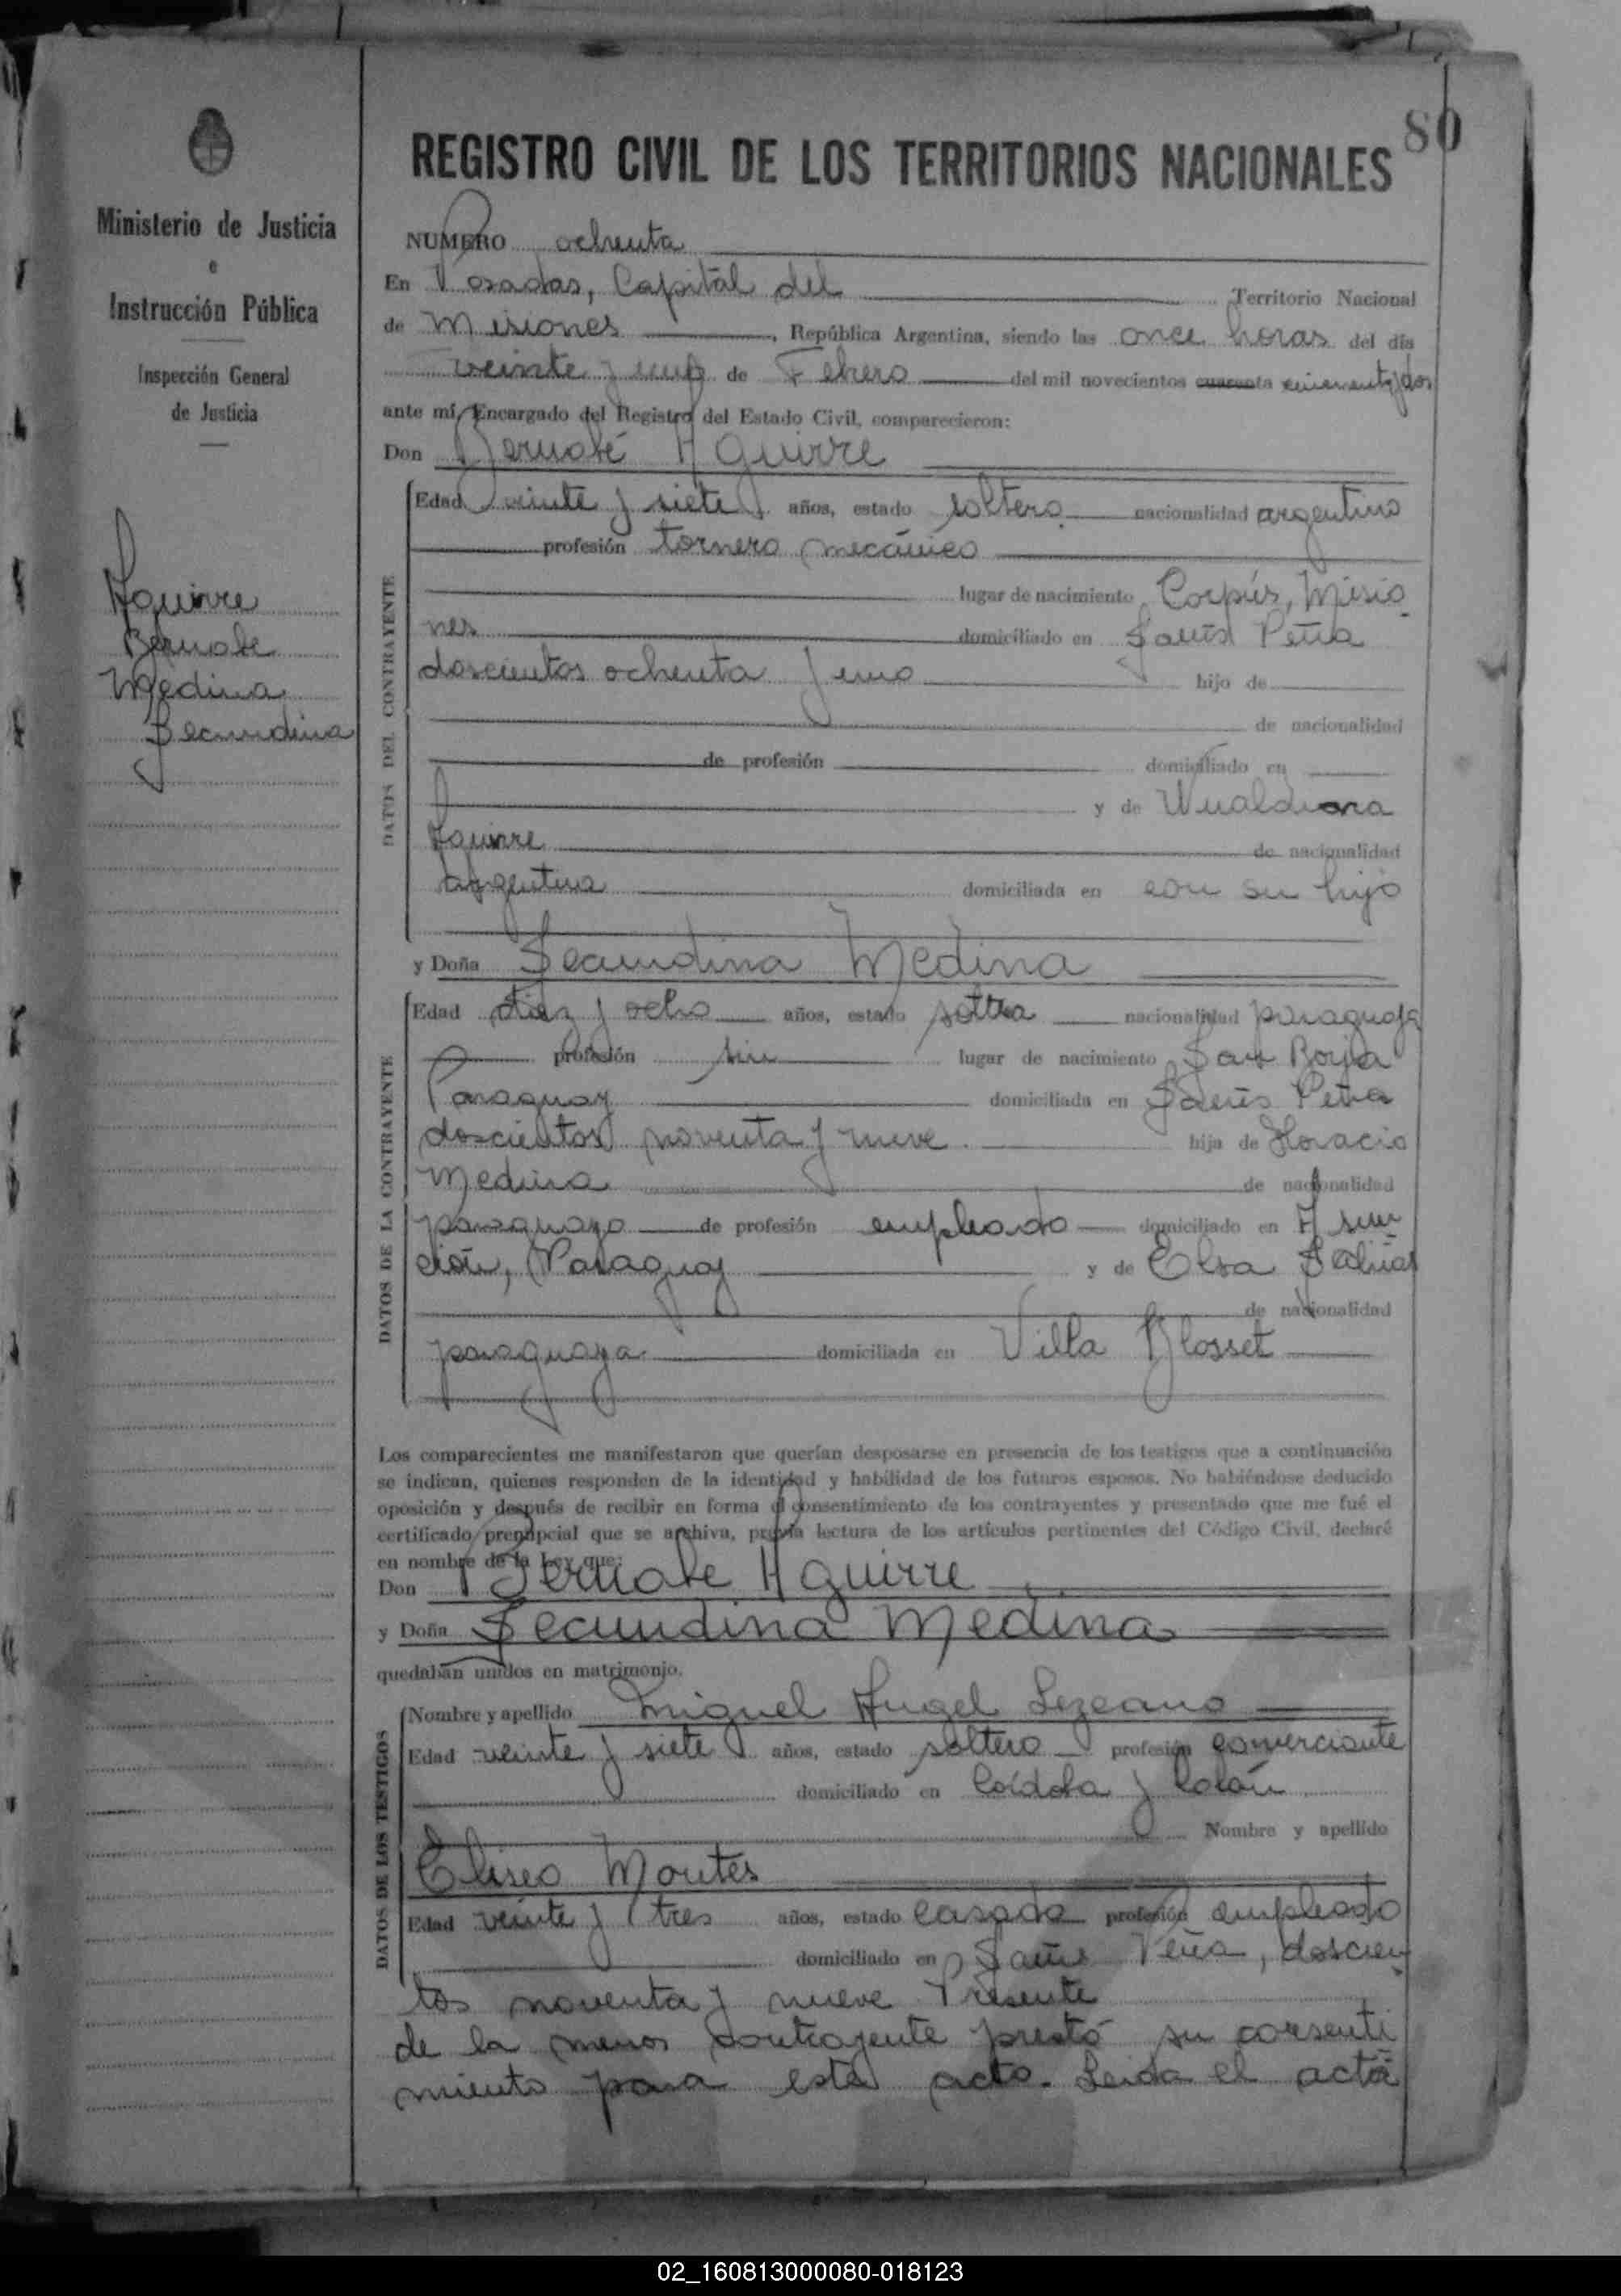 80
REGISTRO CIVIL DE LOS TERRITORIOS NACIONALES
Ministerio de Justicia
e
Instrucción Pública
Inspección General
de Justicia
Aguirre
Bernabe
Medina
Secundina
NUMERO ochenta
En Posadas, Capital del Territorio Nacional
de Misiones, República Argentina, siendo las once horas del día
veinte y uno de Febrero del mil novecientos cuarenta cincuenta y dos
ante mí, Encargado del Registro del Estado Civil, comparecieron:
Don Bernabé Aguirre
DATOS DEL CONTRAYENTE
Edad veinte y siete años, estado soltero nacionalidad argentino
profesión tornero mecánico
lugar de nacimiento Corpús, Misio
nes domiciliado en Saens Peña
doscientos ochenta y uno hijo de
de nacionalidad
de profesión domiciliado en
y de
Aguirre de nacionalidad
argentina domiciliada en con su hijo
y Doña Secundina Medina
DATOS DE LA CONTRAYENTE
Edad diez y ocho años, estado soltera nacionalidad paraguaya
profesión sin lugar de nacimiento San Borja
Paraguay domiciliada en Saens Peña
doscientos noventa y nueve hija de Horacio
Medina de nacionalidad
paraguayo de profesión empleado domiciliado en Asun
ción, Paraguay y de Elsa
de nacionalidad
paraguaya domiciliada en Villa Blosset
Los comparecientes me manifestaron que querían desposarse en presencia de los testigos que a continuación
se indican, quienes responden de la identidad y habilidad de los futuros esposos. No habiéndose deducido
oposición y después de recibir en forma el consentimiento de los contrayentes y presentado que me fué el
certificado prenupcial que se archiva, previa lectura de los artículos pertinentes del Código Civil, declaré
en nombre de la Ley que:
Don Bernabe Aguirre
y Doña Secundina Medina
quedaban unidos en matrimonio.
DATOS DE LOS TESTIGOS
Nombre y apellido Miguel Angel Lezcano
Edad veinte y siete años, estado soltero profesión comerciante
domiciliado en Córdoba y Colón
Nombre y apellido
Eliseo Montes
Edad veinte y tres años, estado casado profesión empleado
domiciliado en Saens Peña, doscien
tos noventa y nueve Presente
de la menor contrayente prestó su consenti
miento para este acto. Leida el acta
02_160813000080-018123